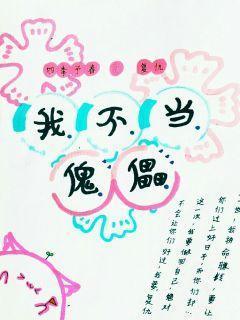 四季予春 复仇
我不当
傀儡
我拼命赚钱，要让
你们过上好日子，而你们却...
这一次，我要做回自己，绝对
不会让你们好过，我要，复仇